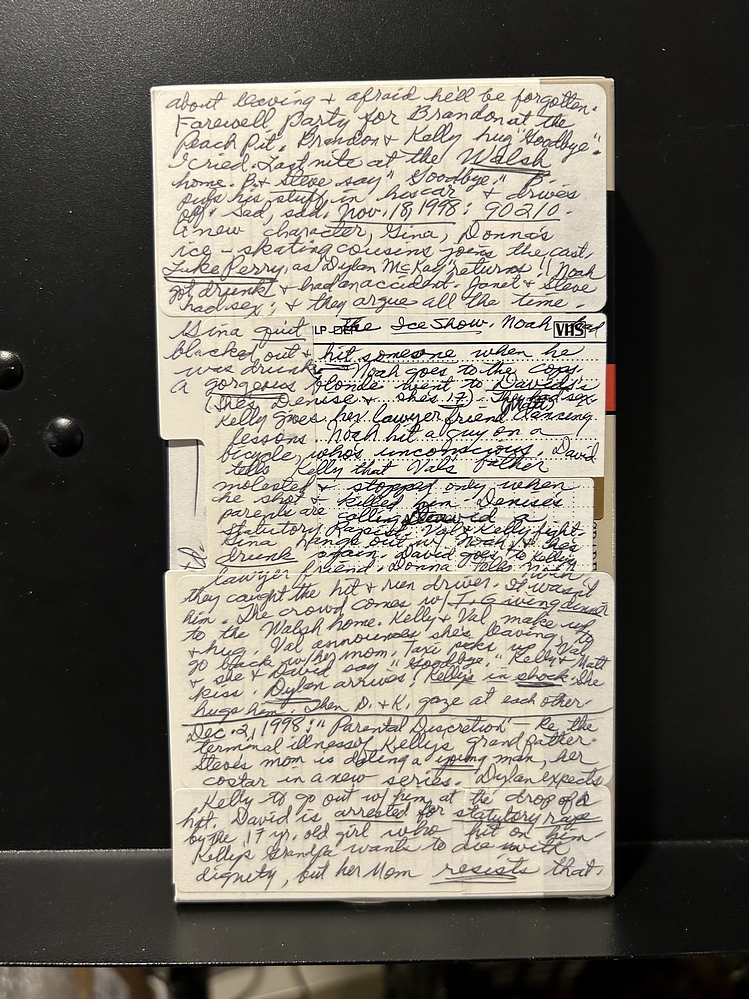 about leaving + afraid he'll be forgotten.
Farewell party for Brandon at the
Peach Pit. Brandon + Kelly hug "Goodbye".
I cried. Last nite at the Walsh
home. B. + Steve say "Goodbye." B.
puts his stuff in his car + drives
off. Sad, sad. Nov. 18, 1998: 90210.
A new character, Gina, Donna's
ice-skating cousins joins the cast.
Luke Perry, as "Dylan McKay" returns! Noah
got drunk + had an accident. Janet + Steve
had sex; + they argue all the time.
Gina quit the Ice Show. Noah had
LP
VHS
blacked out + hit someone when he
was drunk. Noah goes to the cops.
a gorgeous blonde went to David's
(She's Denise + she's 17). They had sex.
Kelly gives her lawyer friend (Matt) dancing
lessons. Noah hit a guy on a
bicycle who's unconscious. David
tells Kelly that Val's father
molested + stopped only when
he shot + killed him. Denise's
parents are calling David
statutory rapist. Val + Kelly fight.
Gina hangs out w/ Noah + he's
drunk again. David goes to Kelly's
lawyer friend. Donna tells Noah
they caught the hit + run driver. It wasn't
him. The crowd comes w/ T-Giving dinner
to the Walsh home. Kelly + Val make up
+ hug. Val announces she's leaving to
go back w/ her mom. Taxi picks up Val
+ she + David say "Goodbye." Kelly + Matt
kiss. Dylan arrives! Kelly's in shock. She
hugs him. Then D. + K. gaze at each other.
Dec. 2, 1998: "Parental Discretion" - Re the
terminal illness of Kelly's grandfather.
Steve's mom is dating a young man, her
costar in a new series. Dylan expects
Kelly to go out w/ him at the drop of a
hat. David is arrested for statutory rape
by the 17 yr. old girl who hit on him.
Kelly's Grandpa wants to die with
dignity, but her Mom resists that.